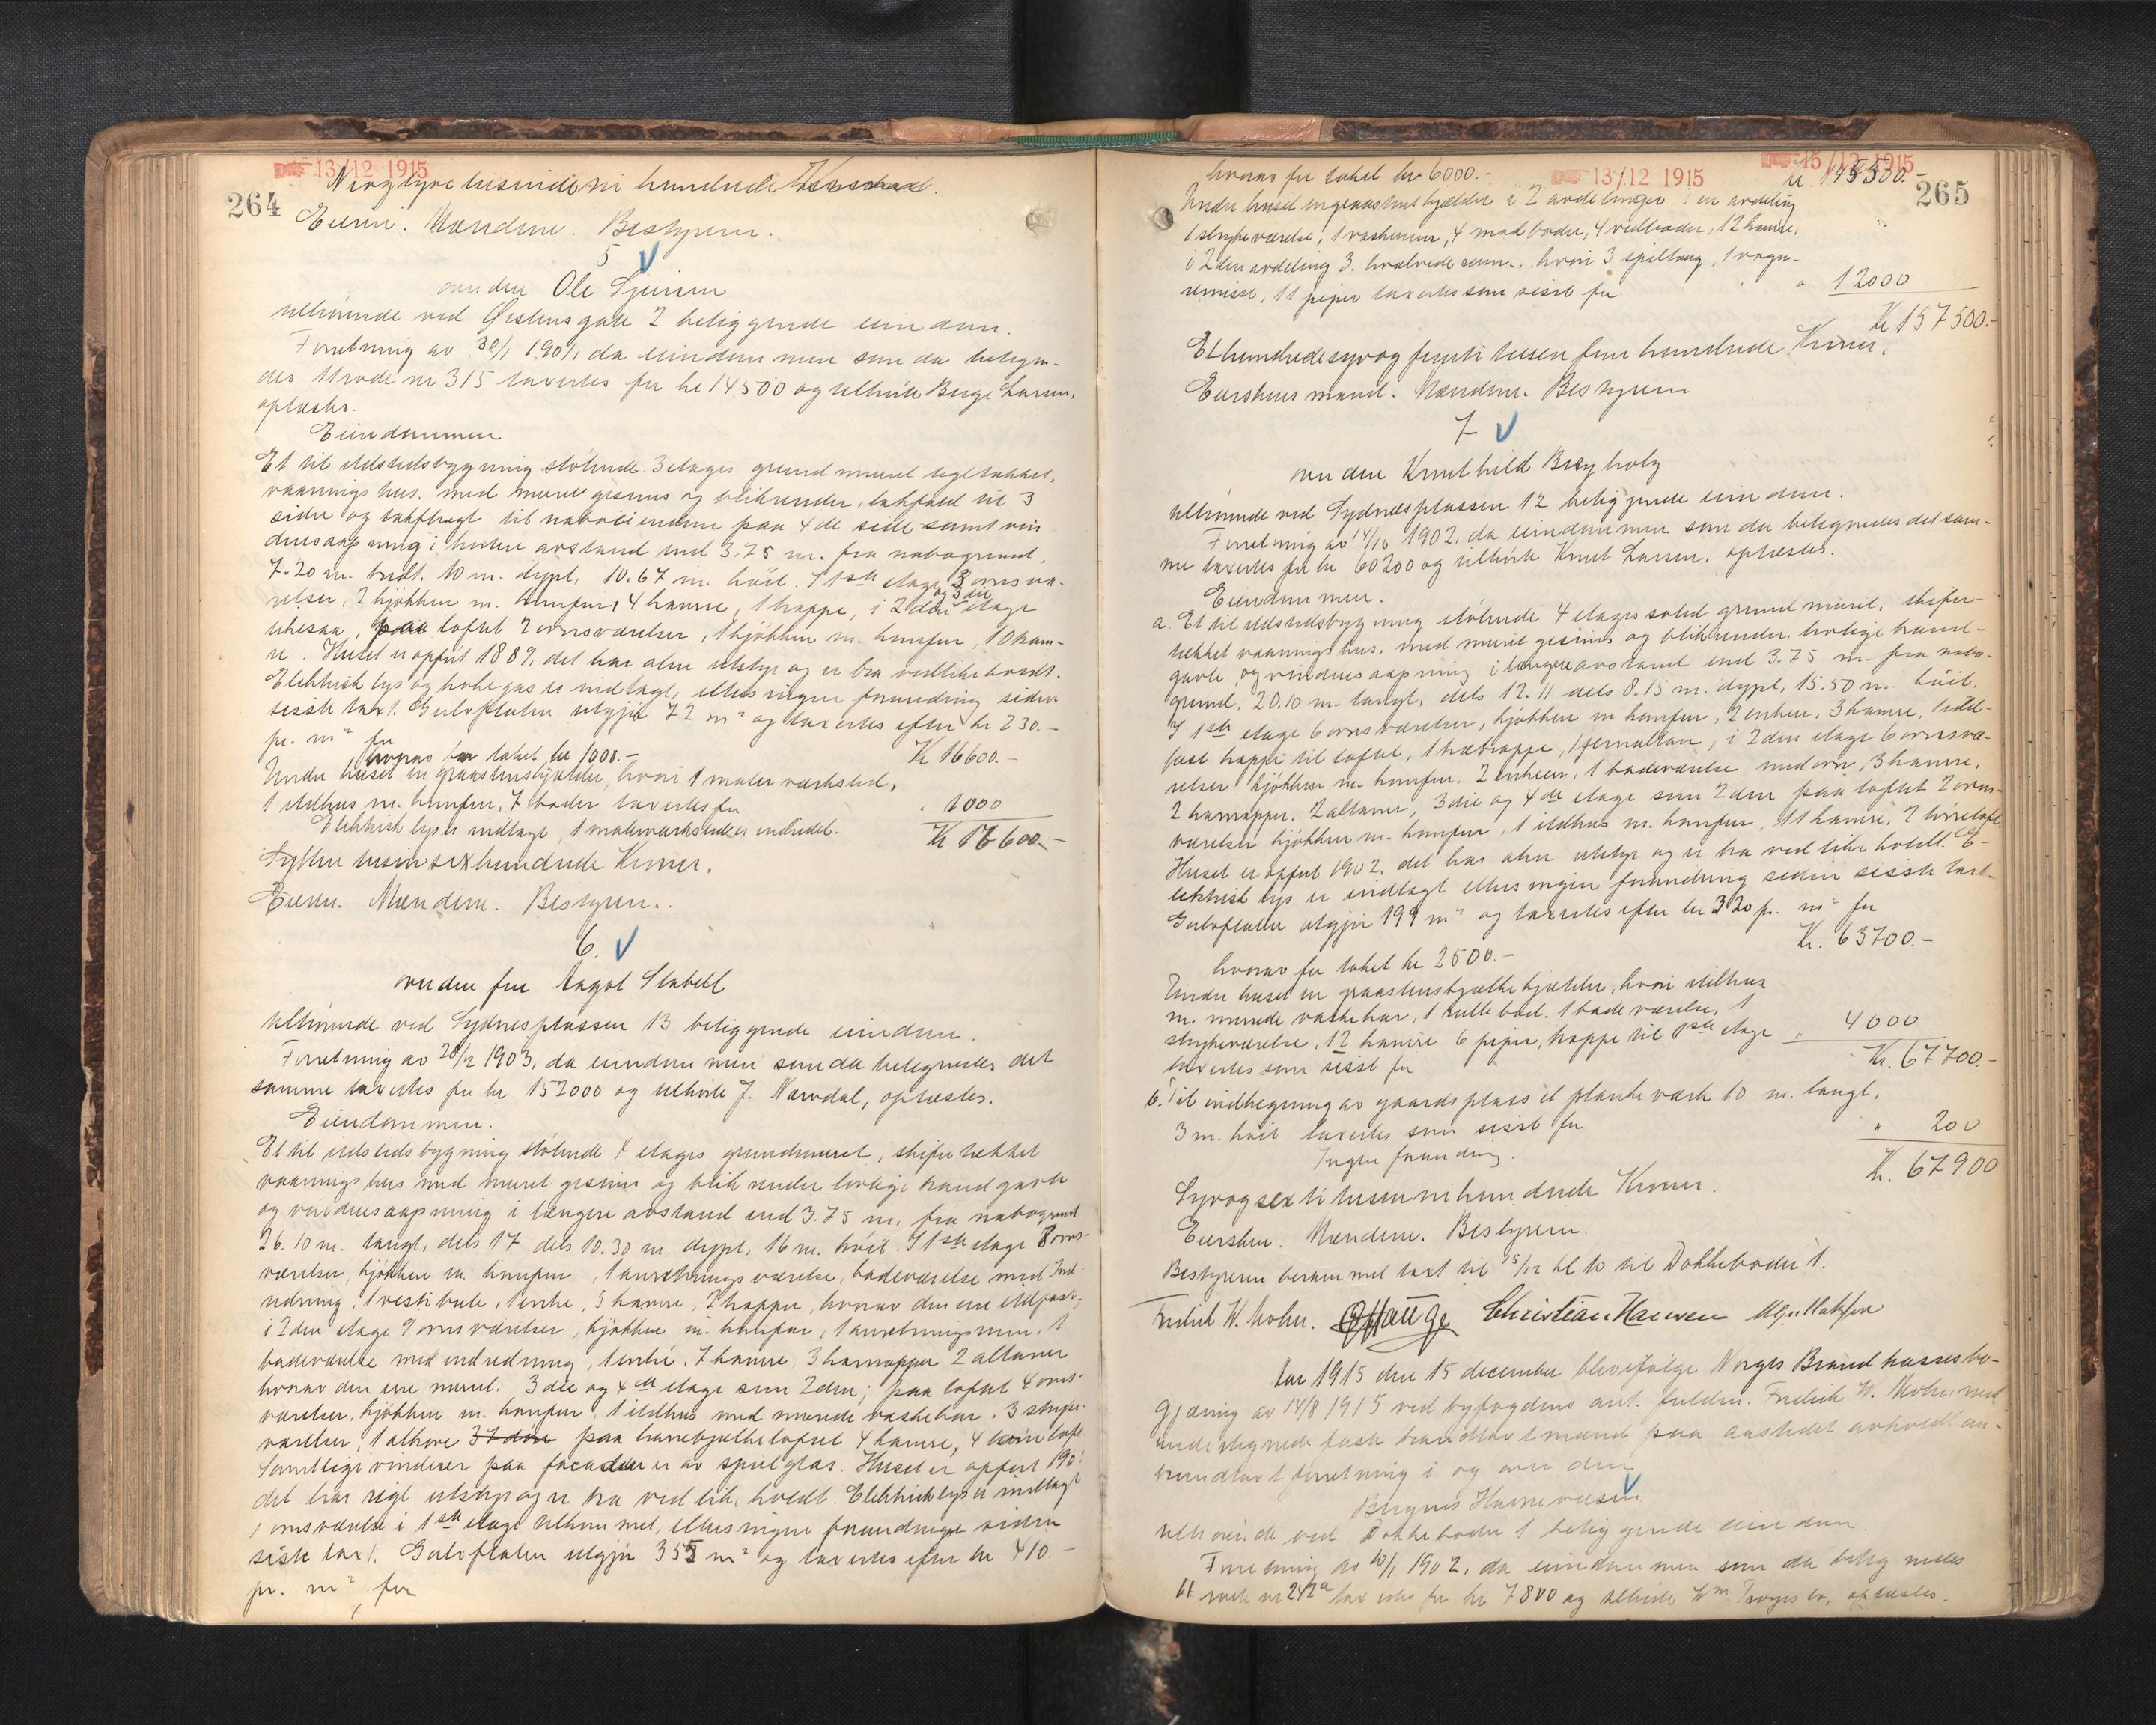 13/12 1915
264
Niogtyve tusinde ni hundrede Kroner.
Eieren. Mændene. Bestyreren.
5
over den Ole Sjursen
tilhørende ved Øistensgate 2 beliggende eiendom.
Forretning av 30/1 1901, da eiendommen som da betegn-
des 11 rode nr 315 taxertes for kr 14500 og tilhørte Berge Larsen,
oplæstes.
Eiendommen
Et til ildstedsbygning støtende 3 etages grundmuret tegltækket
vaaningshus med muret gesims og blikrender, takfald til 3
sider og takflugt til naboeiendom paa 4de side samt vin
duesaapning i kortere avstand end 3.75 m. fra nabogrund,
7.20 m. bredt, 10 m. dypt, 10.67 m. høit. I 1ste etage 3 ovnsvæ-
relser, 2 kjøkken m. komfur, 4 kamre, 1 trappe, i 2den og 3die etage
likesaa, paa loftet 2 ovnsværelser, 1 kjøkken m. komfur, 10 kam-
re. Huset er opført 1889, det har alm utstyr og er bra vedlikeholdt.
Elektrisk lys og kokegas er indlagt, ellers ingen forandring siden
sisste taxt. Gulvflaten utgjør 72 m² og taxertes efter kr 230.-
pr. m² for
Kr 16600.-
hvorav for taket kr 1000.-
Under huset en graastenskjælder, hvori 1 maler værksted,
1 ildhus m. komfur, 7 boder taxertes for
" 1000
Elektrisk lys er indlagt, 1 malerværksted er indredet.
Kr 17600.-
Sytten tusin sexhundrede Kroner.
Eieren. Mændene. Bestyreren.
6.
over den frue Aagot Stabell
tilhørende ved Sydnesplassen 13 beliggende eiendom.
Forretning av 28/12 1903, da eiendommen som da betegnedes det
samme taxertes for kr 152000 og tilhørte J. Nævdal, oplæstes.
Eiendommen.
Et til ildstedsbygning støtende 4 etages grundmuret, skifertækket
vaaningshus med muret gesims og blikrender lovlige brandgavle
og vinduesaapning i længere avstand end 3.75 m. fra nabogrund
26.10 m. langt, dels 17 dels 10.30 m. dypt, 16 m. høit. I 1ste etage 8 ovns-
værelser, kjøkken m. komfur, 1 anretningsværelse, badeværelse med ind-
redning, 1 vestibule, 1 entre, 5 kamre, 2 trapper, hvorav den ene ildfast,
i 2den etage 9 ovnsværelser, kjøkken m. komfur, 1 anretningsrum, 1
badeværelse med indredning, 1 entré, 7 kamre, 3 karnapper 2 altaner
hvorav den ene muret. 3die og 4de etage som 2den; paa loftet 4 ovns-
værelser, kjøkken m. komfur, 1 ildhus med murede vaskekar, 3 stryke-
værelser, 1 alkove paa hanebjælkeloftet 4 kamre, 4 tørreloft
Samtlige vinduer paa facaden er av speilglas. Huset er opført 190
det har rigt utstyr og er bra vedlikeholdt. Elektrisk lys er indlagt
1 ovnsværelse i 1ste etage tilkommet, ellers ingen forandringer siden
siste taxt. Gulvflaten utgjør 355 m² og taxertes efter kr 410.-
pr. m² for
13/12 1915
15/12 1915
265
kr. 145500.-
hvorav for taket kr 6000.-
Under huset en graastenskjælder i 2 avdelinger i en avdeling
1 strykeværelse, 1 vaskerum, 4 matboder, 4 vedboder, 12 kamre,
i 2den avdeling 3 hvælvede rum, hvori 3 spiltaug, 1 vogn-
remisse, 11 piper taxertes som sisst for
" 12000
Kr 157500.-
Et hundrede syvog femti tusen fem hundrede Kroner.
Eierskens mand. Mændene. Bestyreren
7
over den Knut hild
tilhørende ved Sydnesplassen 12 beliggende eiendom.
Forretning av 14/10 1902, da eiendommen som da betegnedes det sam-
me taxertes for kr 60200 og tilhørte Knut Larsen, oplæstes.
Eiendommen.
a. Et til ildstedsbygning støtende 4 etages solid grundmuret, skifer-
tækket vaaningshus, med muret gesims og blikrender, lovlige brand-
gavle og vinduesaapning i længere avstand end 3.75 m. fra nabo-
grund, 20.10 m. langt, dels 12.11 dels 8.15 m. dypt, 15.50 m. høit.
I 1ste etage 6 ovnsværelser, kjøkken m komfur, 2 entreer, 3 kamre, 1 ild-
fast trappe til loftet, 1 trætrappe, 1 jernaltan, i 2den etage 6 ovnsvæ-
relser kjøkken m. komfur, 2 entreer, 1 badeværelse med ovn, 3 kamre,
2 karnapper, 2 altaner, 3die og 4de etage som 2den paa loftet 2 ovns-
værelser kjøkken m. komfur, 1 ildhus m. komfur, 11 kamre, 2 tørreloft.
Huset er opført 1902, det har alm utstyr og er bra vedlikeholdt. E-
lektrisk lys er indlagt ellers ingen forandring siden sisste taxt.
Gulvflaten utgjør 199 m² og taxertes efter kr 320 pr. m² for
Kr. 63700.-
hvorav for taket kr 2500.-
Under huset en graastensbjælkekjælder, hvori ildhus
m. murede vaskekar, 1 rullebod, 1 badeværelse, 1
strykeværelse, 12 kamre 6 piper, trappe til 1ste etage
taxertes som sisst for
" 4000
Kr. 67700.-
b. Til indhegning av gaardsplass et plankeværk 10 m. langt,
3 m. høit taxertes som sisst for
" 200
Ingen forandring.
Kr. 67900
Syvogsexti tusen nihundrede Kroner.
Eiersken. Mændene. Bestyreren.
Bestyreren berammet taxt til 15/12 kl 10 til Dokkeboder 1.
Fredrik W. Mohn. O Hauge Christian Hansen
Aar 1915 den 15 december blev ifølge Norges Brandkasses be-
gjæring av 14/8 1915 ved byfogdens aut. fuldm. Fredrik W. Mohn med
undertegnede faste brandtaxtmænd paa aastedet avholdt om-
brandtaxtforretning i og over den
Bergens Havnevæsen
tilhørende ved Dokkeboder 1 beliggende eiendom
Forretning av 10/1 1902, da eiendommen som da betegnedes
11 rode nr 242a taxertes for kr 7800 og tilhørte Wm oplæstes.